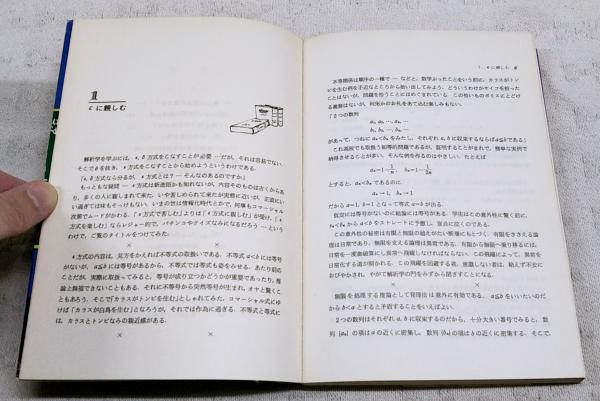 1
εに親しむ
解析学を学ぶには，ε，δ方式をこなすことが必要 …だが，それは容易でない．
そこでδを抜き，ε方式をこなすことから始めようというわけである．
「ε，δ方式なら分るが，ε方式とは？ …そんなのあるのですか」
もっともな疑問 … ε方式は新造語かも知れないが，内容そのものは古くからあ
り，多くの人に親しまれて来た．いや苦しめられて来たが実際に近いが，正直にい
い過ぎては味もそっけもない．いまの世は情報化時代とか，何事もコマーシャル
次第でムードがかわる．「ε方式で苦しむ」よりは「ε方式に親しむ」が受け，「ε
方式を楽しむ」ならレジャー的で，パチンコやクイズなみになるだろう … という
わけで，ご覧のタイトルをつけてみた．
× ×
ε方式の内容は，見方をかえれば不等式の取扱いである．不等式 a<b には等号
がないが，a≦b には等号があるから，不等式では等式でも姿をみせる．あたり前の
ことだが，実際に取扱ってみると，等号が成り立つかどうかが重要であったり，推
論と無縁でないこともある．それに不等号から突然等号が生まれ，オヤと驚くこ
ともあろう．そこで「カラスがトンビを生む」としゃれてみた．コマーシャル式にゆ
けば「カラスが白鳥を生む」となろうが，それでは作為に過ぎる．不等式と等式に
は，カラスとトンビなみの親近感がある．
× ×
1. εに親しむ
不等関係は順序の一種で … などと，数学ぶったことをいう前に，カラスがトン
ビを生む例を手近なところから拾い出してみよう．どういうわけかサイフを拾った
ことはないが，問題を拾うことにはめぐまれている．この拾いものポリスにとどけ
る義務はないが，何光かのお礼をあて込む楽しみもない．
「2つの数列
a₁, a₂, …, aₙ, …
b₁, b₂, …, bₙ, …
があって，つねに aₙ<bₙ をみたし，それぞれ a, b に収束するならば a≦b である」
これ高校でも取扱う初等的問題であるが，証明するとがまれで，簡単な実例で
納得させることが多い．そんな例を作るのはやさしい．たとえば
aₙ=1−1/n, bₙ=1−1/2n
とすると，aₙ<bₙ であるのに，
aₙ→1, bₙ→1
だから a=1, b=1 となって等式 a=b が出る．
仮定には等号がないのに結論には等号がある．学生はこの意外性に驚く前に，
aₙ<bₙ から a<b をストレートに予想し，盲点に泣くのである．
この意外性の秘密は有限と無限の組かえがたい断層にもとづく．有限をささえる論
理は日常であり，無限を支える論理は異常である．有限から無限へ乗り移るには，
日常を一度御破算にし異常へ飛躍しなければならない．この飛躍によって，異常を
日常化する道が開かれる．この飛躍を回避する者，意識しない者は，絶えず不安に
おびやかされ，やがて解析学の門をみずから閉ざすことになる．
× ×
無限を処理する推論として背理法は意外に有効である．a≦b をいいたいのだ
から b<a とすると矛盾することをいえばよい．
2つの数列はそれぞれ a, b に収束するのだから，十分大きい番号でみると，数
列 {aₙ} の項は a の近くに密集し，数列 {bₙ} の項は b の近くに密集する．そこで，